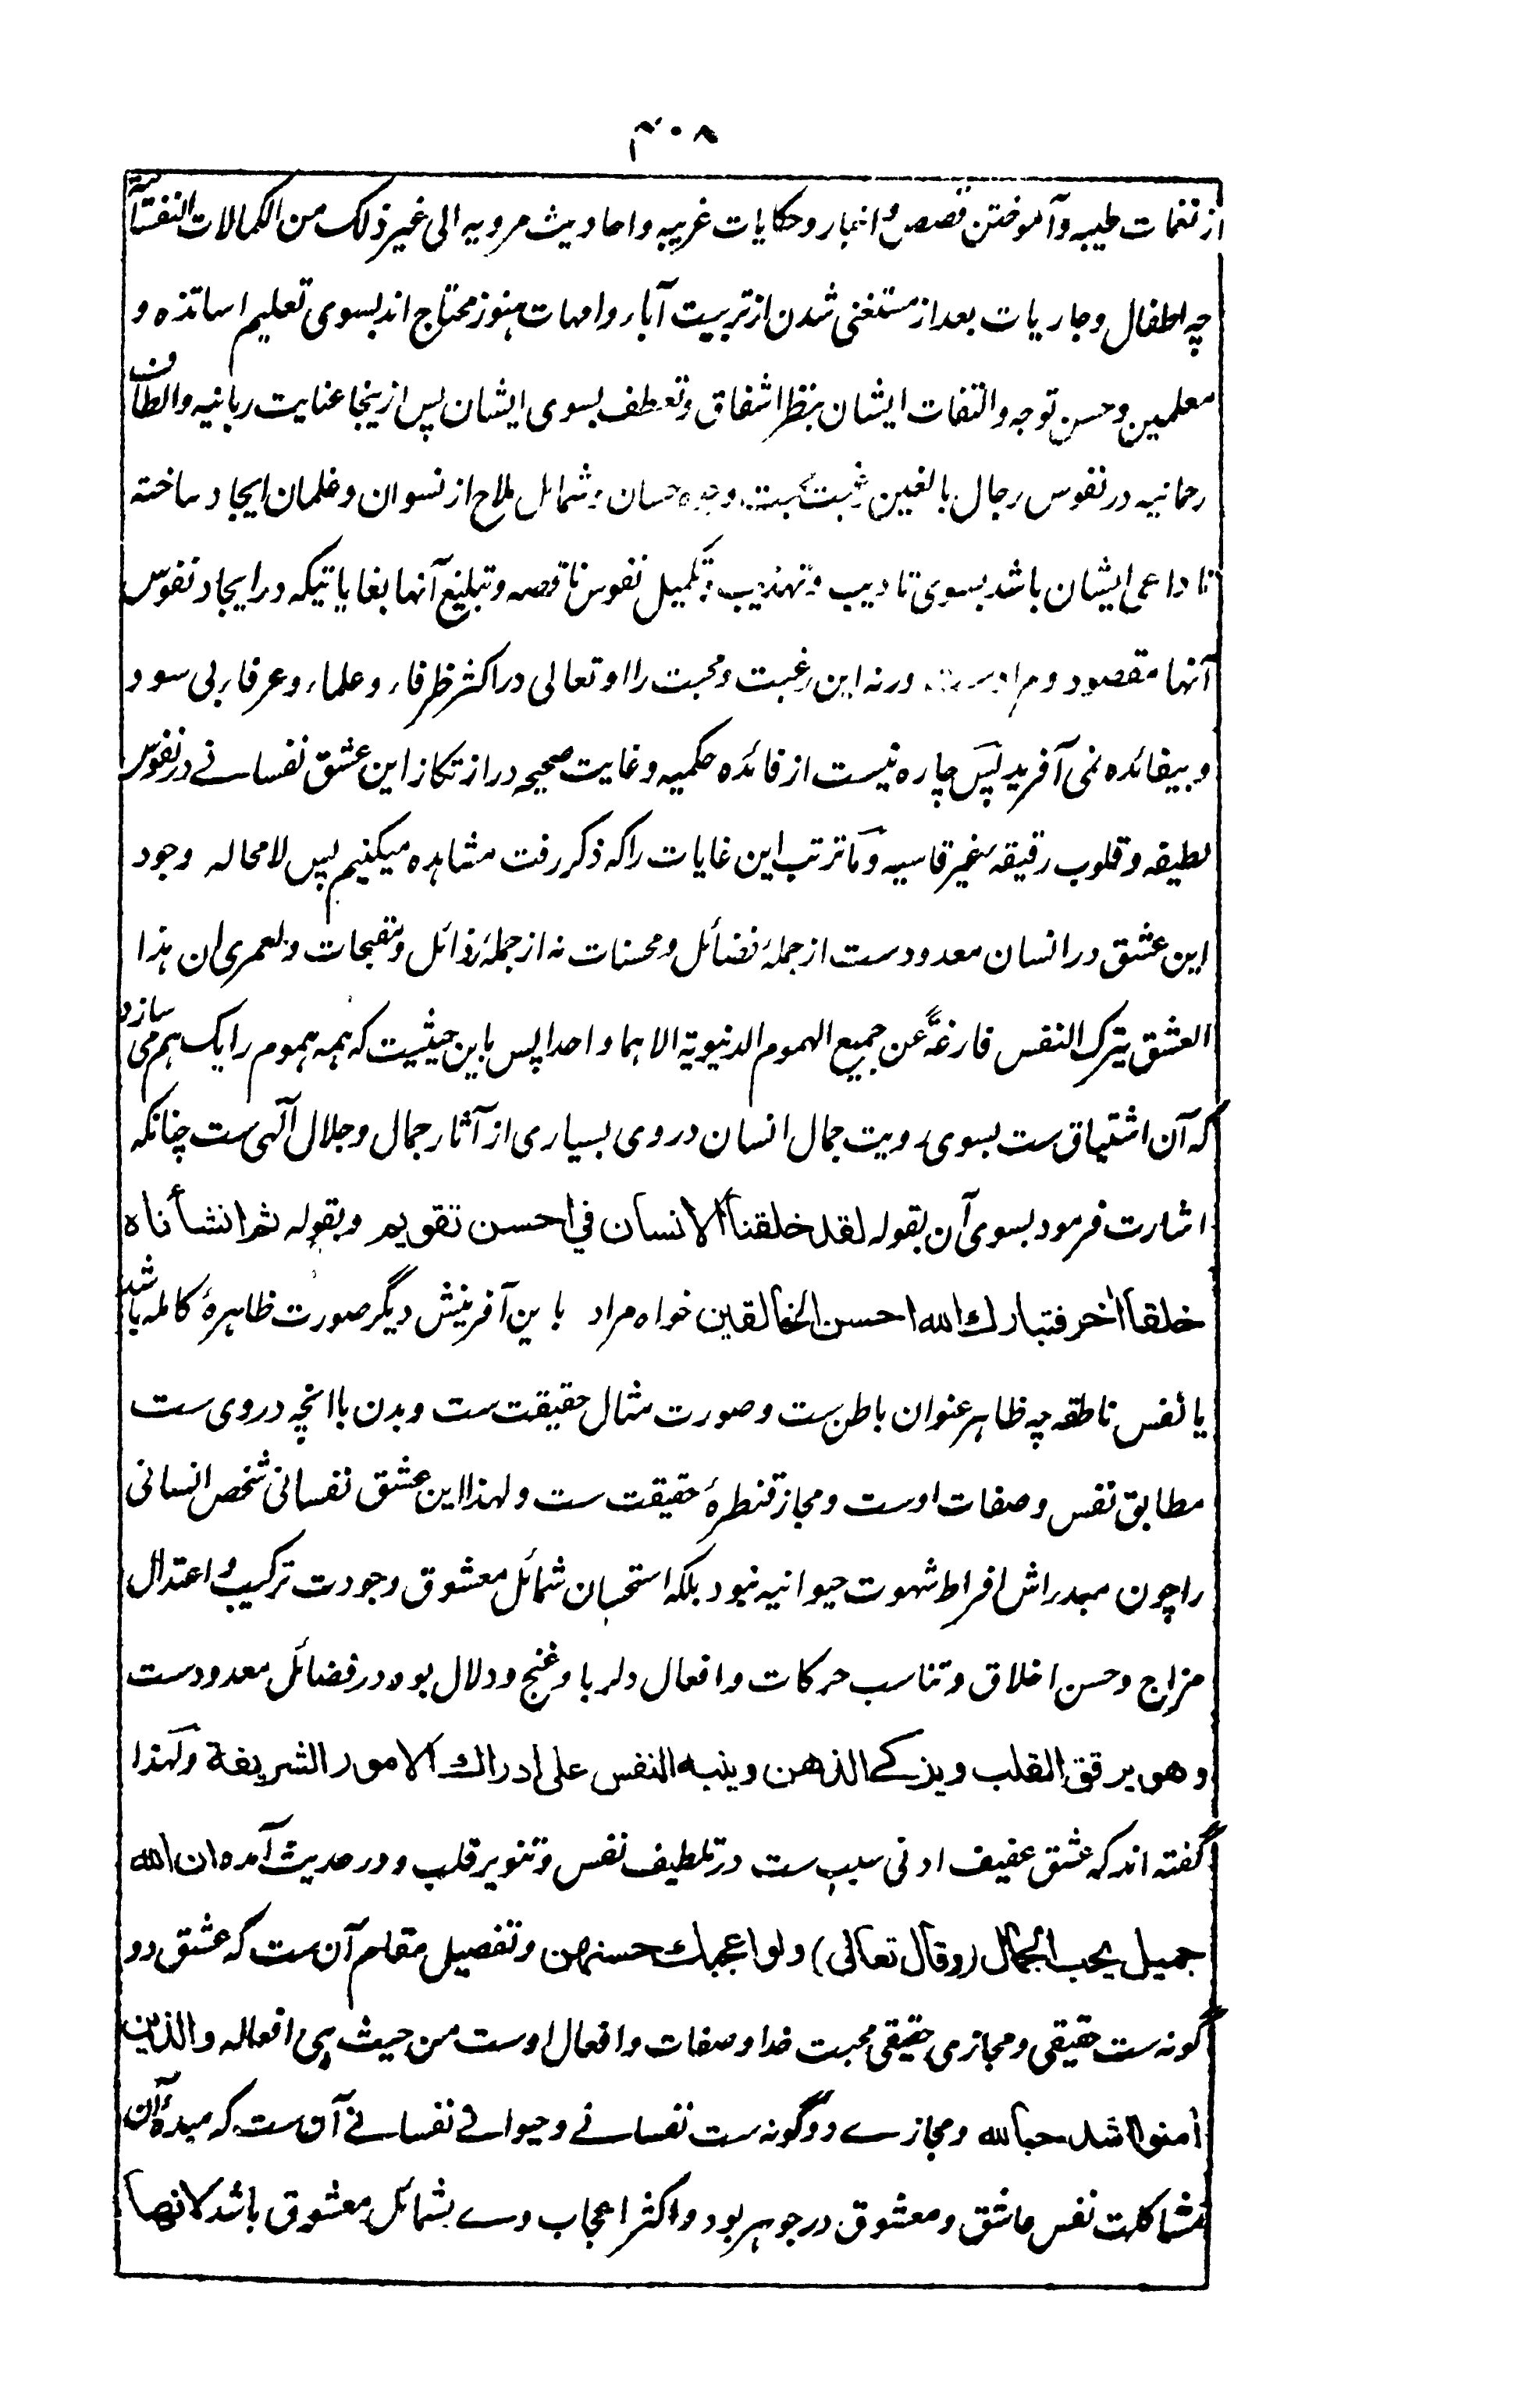 ۴۰۸
از نغمات طیبه و آموختن قصص و اخبار و حکایات غریبه و احادیث مرویه الی غیر ذلک من الکمالات النفسانیة
چه اطفال و جاریات بعد از مستغنی شدن از تربیت آباء و امهات هنوز محتاج اند بسوی تعلیم اساتذه و
معلمین و حسن توجه و التفات ایشان بنظر اشفاق و تعطف بسوی ایشان پس ازینجا عنایت ربانیه و الطاف
رحمانیه در نفوس رجال بالغین وجوه حسان و شمائل ملاح از نسوان و غلمان ایجاد ساخته
تا داعی ایشان باشد بسوی تادیب و تهذیب و تکمیل نفوس ناقصه و تبلیغ آنها بغایاتیکه در ایجاد نفوس
آنها مقصود و مرادست ورنه این رغبت و محبت را او تعالی در اکثر ظرفاء و علماء و عرفاء بی سود
و بیفائده نمی آفرید پس چاره نیست از فائده حکمیه و غایت صحیحه در ارتکاز این عشق نفسانے در نفوس
لطیفه و قلوب رقیقه غیر قاسیه و ما ترتب این غایات را که ذکر رفت مشاهده میکنیم پس لا محاله وجود
این عشق در انسان معدودست از جملۂ فضائل و محسنات نه از جملۂ رذائل و مقبحات و لعمری ان هذا
العشق یترک النفس فارغةً عن جمیع الهموم الدنیویة الا هما واحدا پس باین حیثیت که همه هموم را یک هم می سازد
که آن اشتیاق ست بسوی رویت جمال انسان در وی بسیاری از آثار جمال و جلال آلهی ست چنانکه
اشارت فرمود بسوی آن بقوله لقد خلقنا الانسان في احسن تقویم و بقوله ثم انشأناه
خلقا اخر فتبارك الله احسن الخالقین خواه مراد باین آفرینش دیگر صورت ظاهرۂ کامله باشد
یا نفس ناطقه چه ظاهر عنوان باطن ست و صورت مثال حقیقت ست و بدن با انچه در وی ست
مطابق نفس و صفات اوست و مجاز قنطرۂ حقیقت ست و لهذا این عشق نفسانی شخص انسانی
را چون مبدراش افراط شهوت حیوانیه نبود بلکه استحسان شمائل معشوق و جودت ترکیب و اعتدال
مزاج و حسن اخلاق و تناسب حرکات و افعال دلربا و غنج و دلال بوده در فضائل معدودست
و هو یرقق القلب و یزکے الذهن و ینبه النفس علی ادراك الامور الشریفة و لهذا
گفته اند که عشق عفیف ادنی سبب ست در تلطیف نفس و تنویر قلب و در حدیث آمده ان الله
جمیل یحب الجمال (و قال تعالی) و لو اعجبك حسنهن و تفصیل مقام آن ست که عشق دو
گونه ست حقیقی و مجازی حقیقی محبت خدا و صفات و افعال اوست من حیث هی افعاله والذین
اٰمنوا اشد حبا لله و مجازے دوگونه ست نفسانے و حیوانے نفسانے آن ست که مبدۂ آن
مشاکلت نفس عاشق و معشوق در جوهر بود و اکثر اعجاب وے بشمائل معشوق باشد لانها